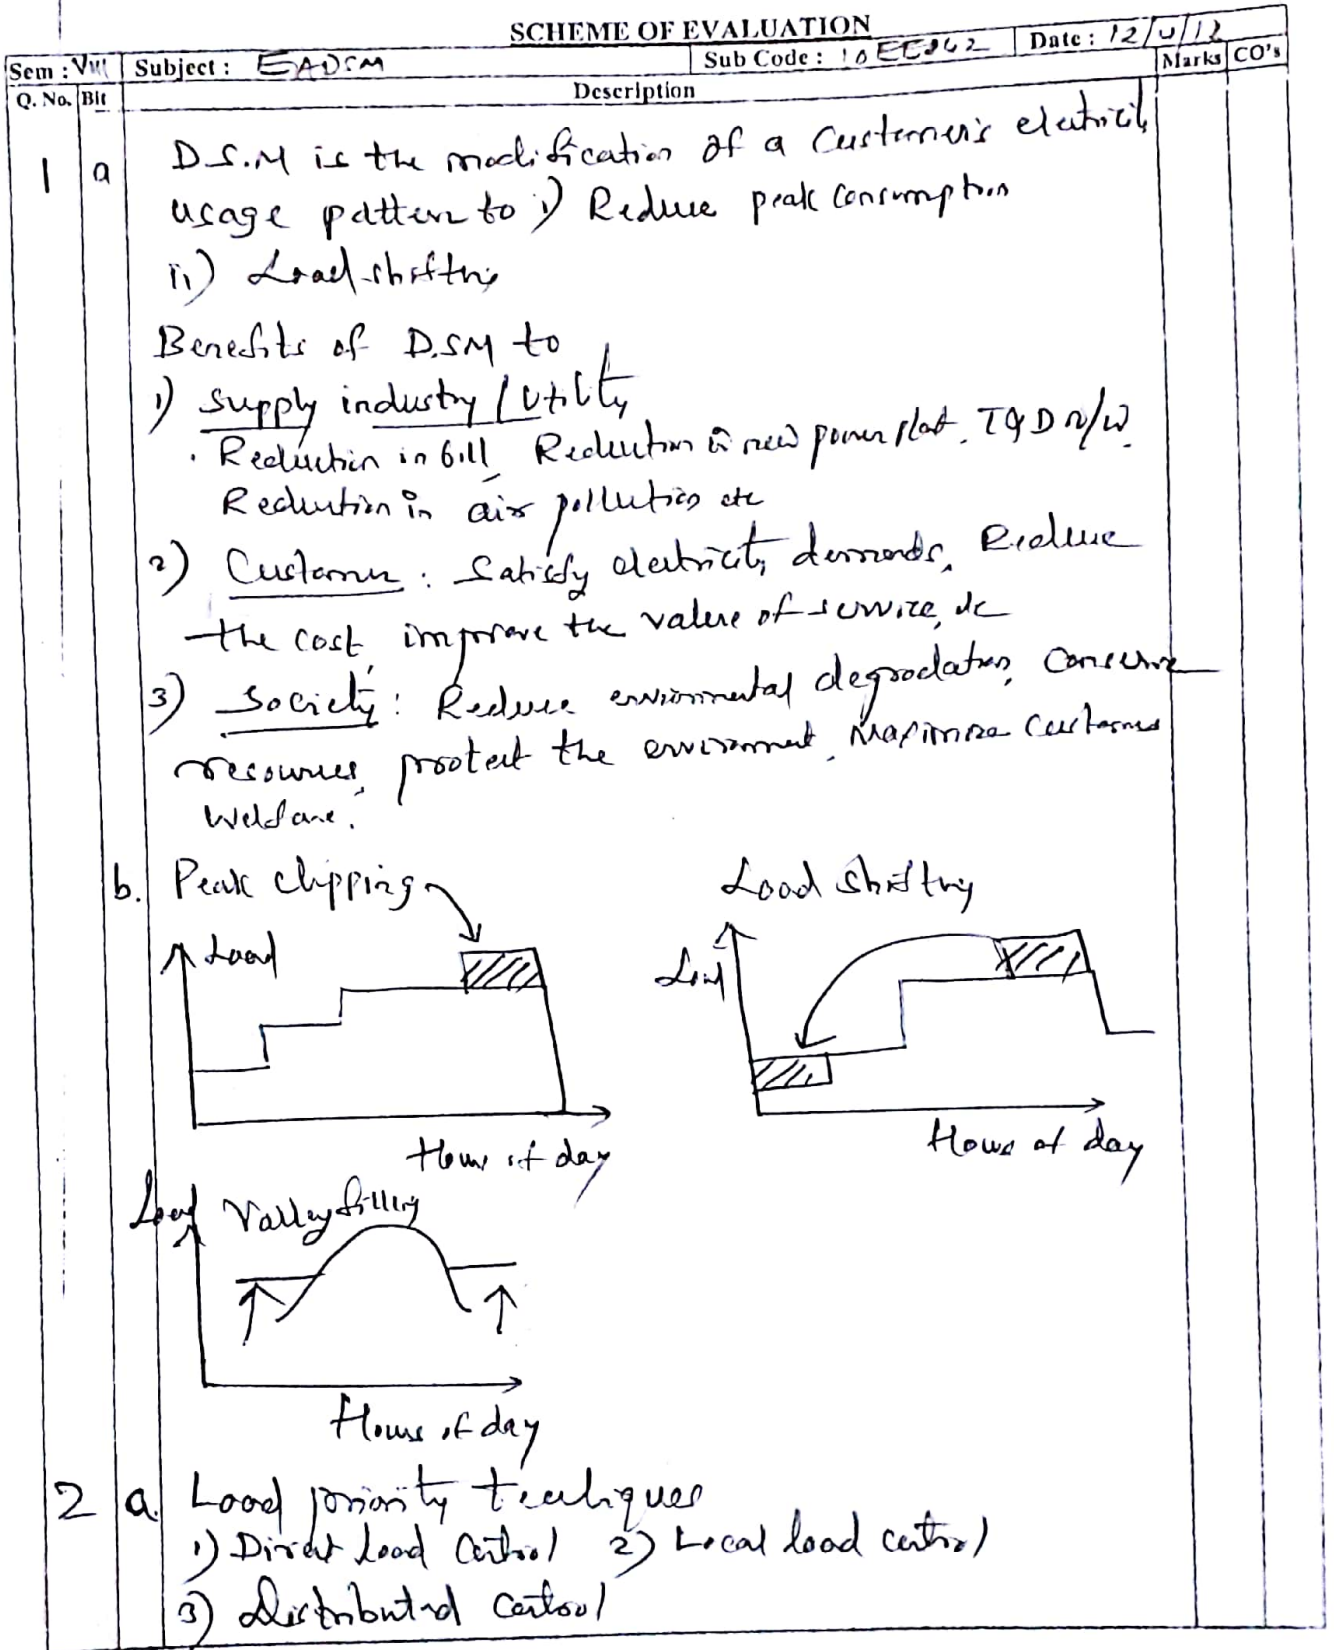 SCHEME OF EVALUATION
Sem : VIII Subject : EADSM Sub Code : 10EE842 Date : 12/4/12 Marks CO's
Q. No. Bit Description
1 a D.S.M is the modification of a Customer's electricity
usage pattern to i) Reduce peak consumption
ii) Load shifting
Benefits of D.SM to
1) Supply industry / Utility
. Reduction in bill, Reduction in new power plant, T&D n/w.
Reduction in air pollution etc
2) Customer : Satisfy electricity demands, Reduce
the cost, improve the value of service, etc
3) Society : Reduce environmental degradation, Conserve
resources, protect the environment, Maximize Customer
Welfare.
b. Peak clipping Load Shifting
Load Load
Hours of day Hours of day
Load Valley filling
Hours of day
2 a. Load priority techniques
1) Direct load Control 2) Local load control
3) Distributed Control